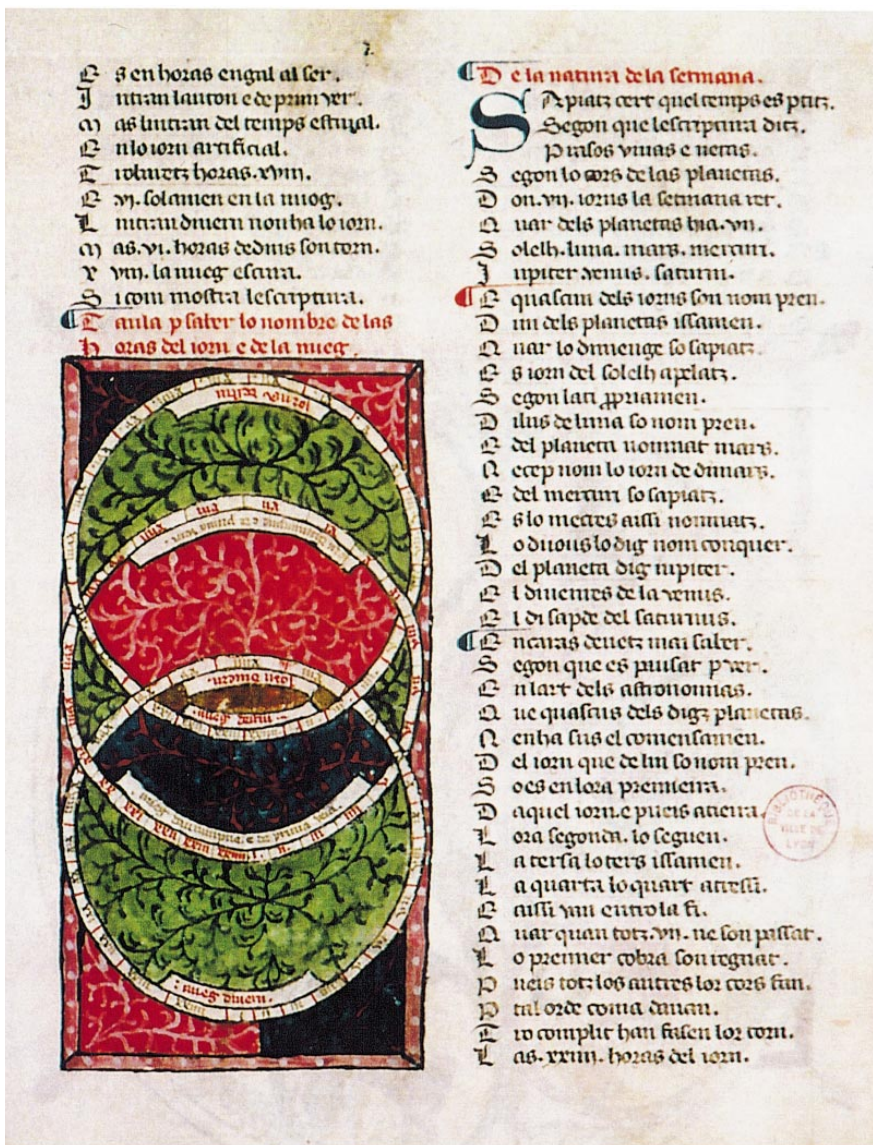 E s en horas engal al ser.
I ntran lauton e de prim ver.
M as luntran del temps estival.
E n lo iorn artificial.
T robaretz horas. xviii.
E vi. solamen en la nuog.
L untran divern non ha lo iorn.
M as. vi. horas dedins son torn.
E xviii. la nueg escura.
S i com mostra lescriptura.
T aula p saber lo nombre de las
h oras del iorn e de la nueg.
iorns estiu
iorn divern.
nueg
nueg dautumpne. e de prima vera.
nueg divern.
D e la natura de la setmana.
S Apiatz cert quel temps es ptitz.
Segon que lescriptura ditz.
P rasos vivas e netas.
S egon lo cors de las planetas.
D on. vii. iorns la setmana ret.
Q uar dels planetas hia. vii.
S olelh. luna. mars. mercuri.
I upiter venus. saturni.
E quascun dels iorns son nom pren.
D un dels planetas issamen.
Q uar lo dimenge so sapiatz.
E s iorn del solelh apelatz.
S egon lati ppriamen.
D ilus de luna so nom pren.
E del planeta nomnat mars.
R ecep nom lo iorn de dimars.
E del mercuri so sapiatz.
E s lo mecres aissi nomnatz.
L o diious lo dig nom conquer.
D el planeta dig iupiter.
E l divenres de la venus.
E l disapde del saturnus.
E ncaras devetz mai saber.
S egon que es pausat p ver.
E n lart dels astronomias.
Q ue quascus dels digz planetas.
R enha sus el comensamen.
D el iorn que de lui so nom pren.
S o es en lora premieira.
D aquel iorn. e pueis atieira.
L ora segonda. lo seguen.
L a tersa lo ters issamen.
L a quarta lo quart atressi.
E aissi van entro la fi.
Q uar quan totz. vii. ne son passat.
L o premier cobra son regnat.
P ueis totz los autres lor cors fan.
P tal orde coma davan.
T ro complit han fasen lor torn.
L as. xxiiii. horas del iorn.
BIBLIOTHEQUE
DE LA
VILLE DE
LYON